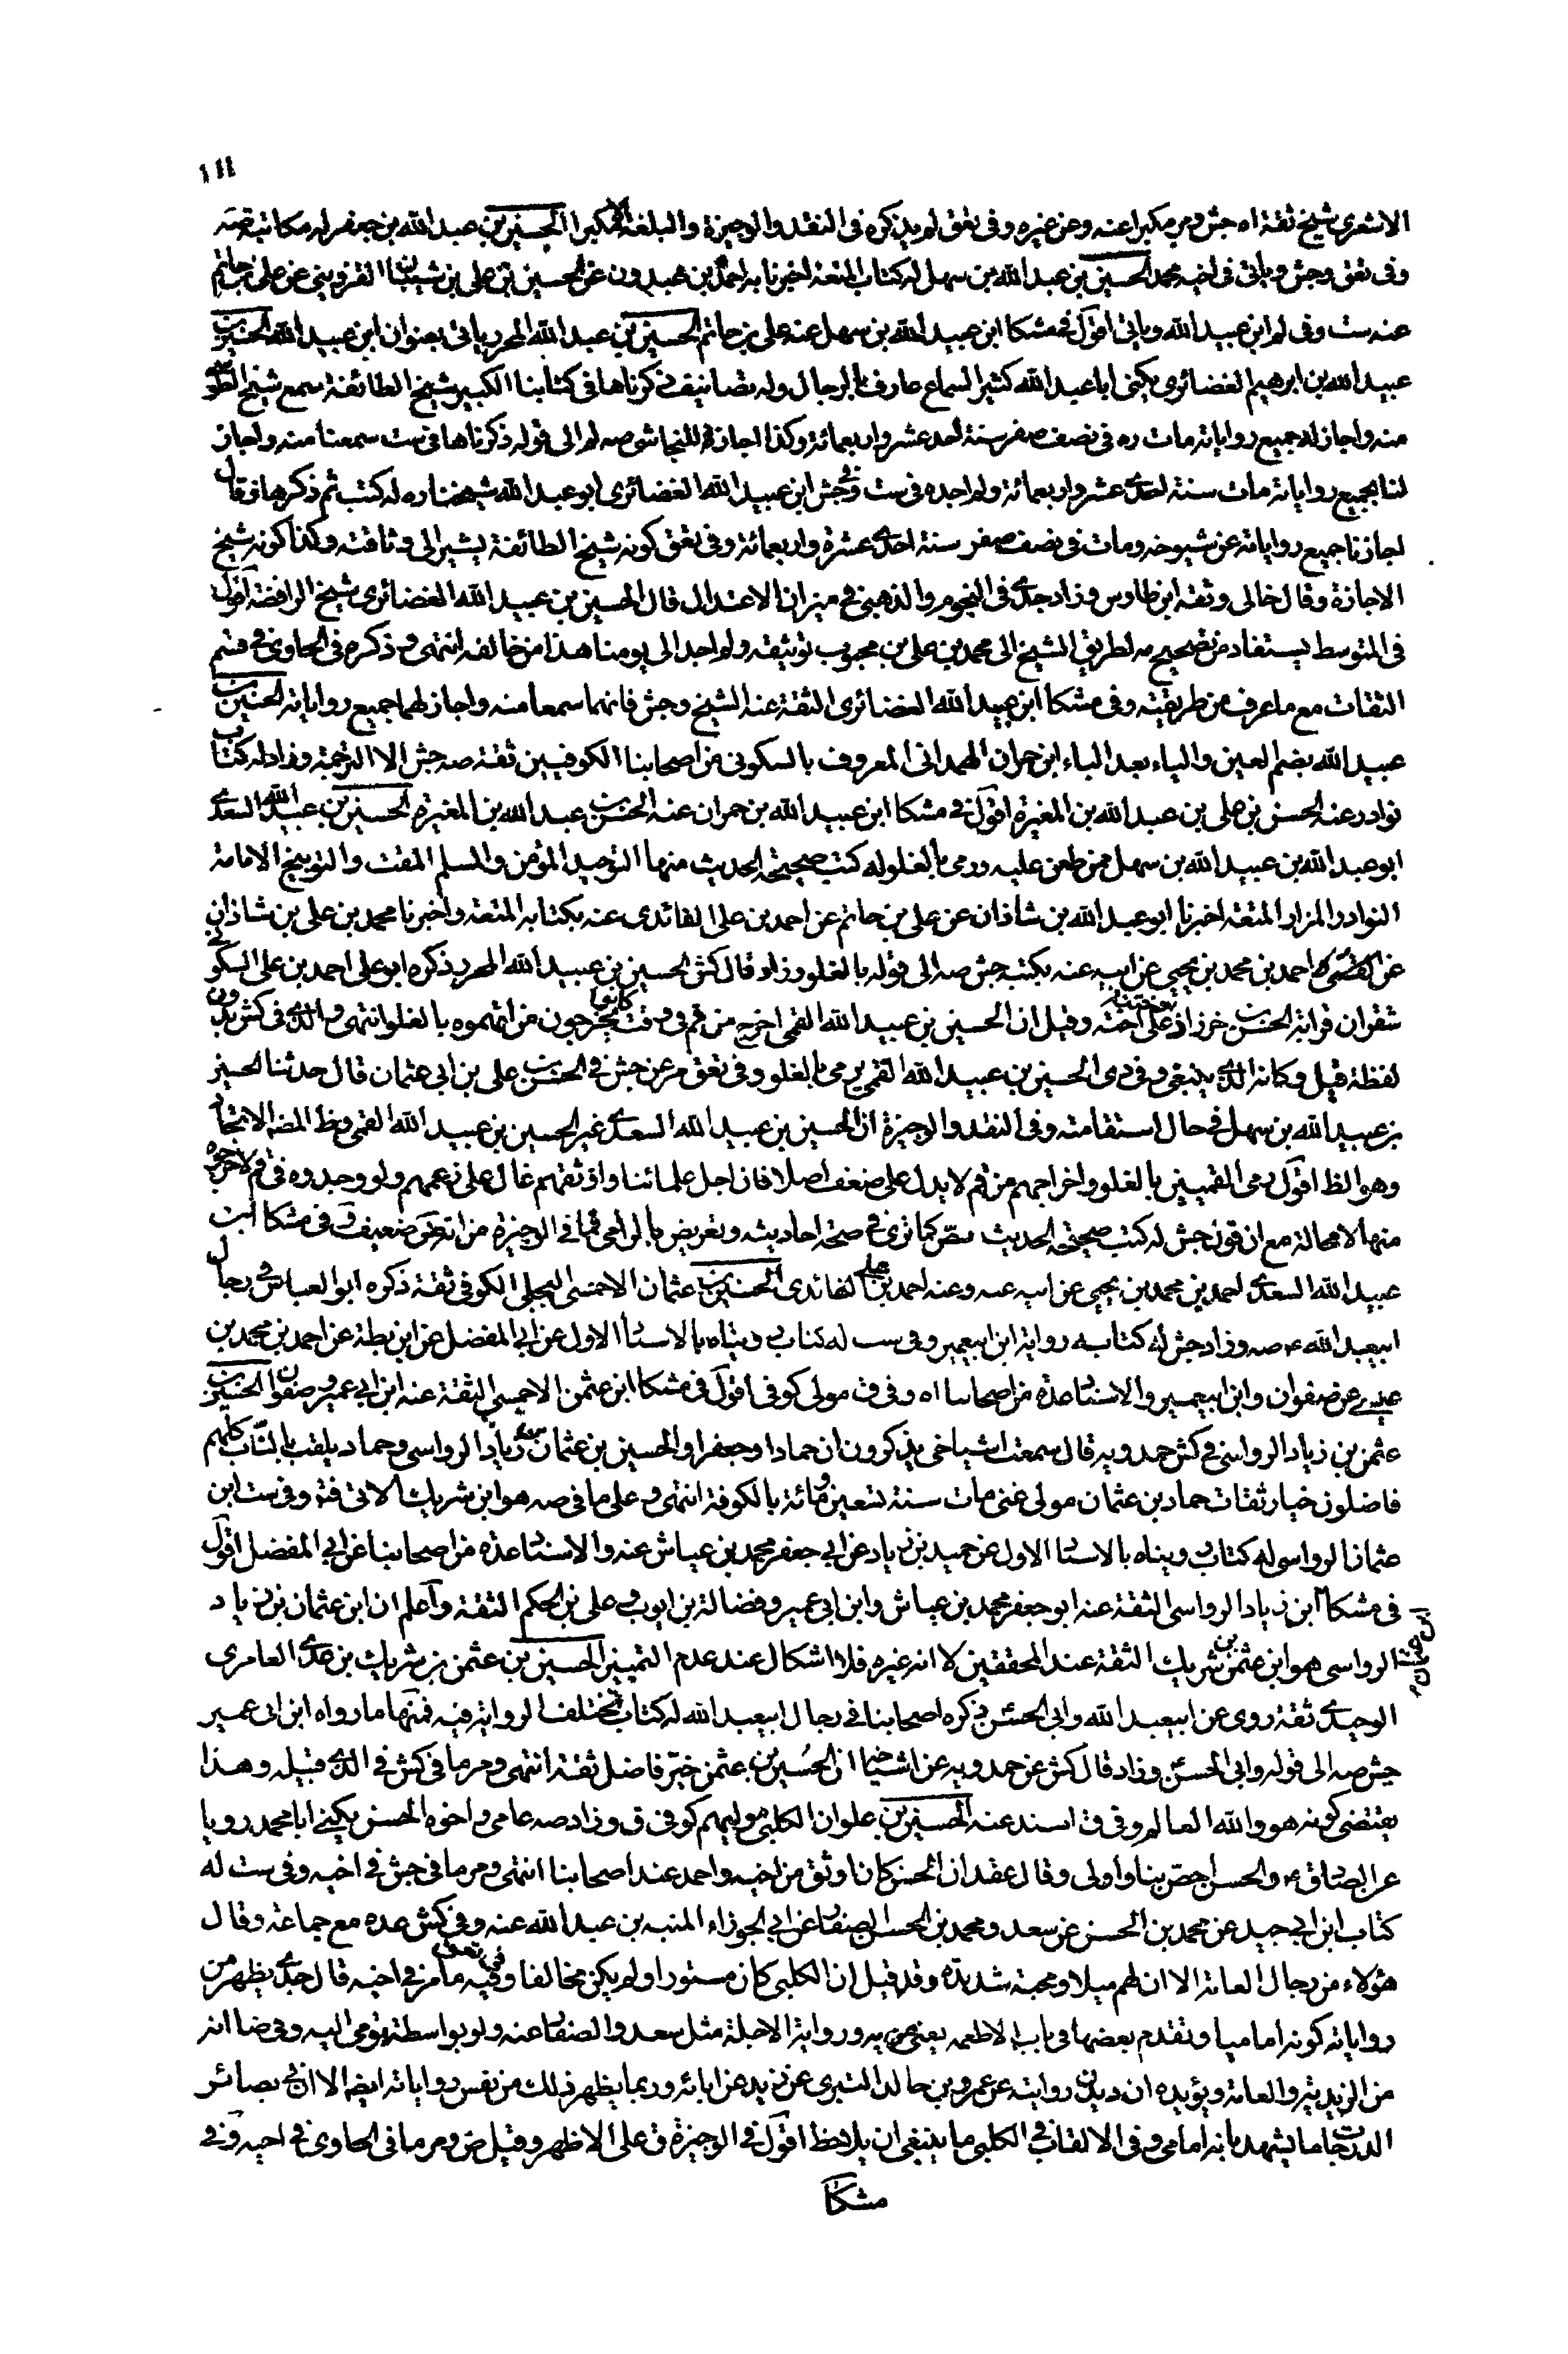 ١١١
الاشعري شيخ ثقة اه جش ومر مكبرا عنه وعن غيره وفي تعق لم يذكره في النقد والوجيزة والبلغة الا مكبرا الحسين بن عبد الله بن جعفر له مكاتبة صه
وفي تعق وجش وياتي في اخيه محمد الحسين بن عبد الله بن سهل له كتاب المتعة اخبرنا به احمد بن عبدون عن الحسين بن علي بن شيبان القزويني عن علي بن حاتم
عنه ست وفي لم ابن عبيد الله وياتي اقول في مشكا ابن عبيد الله بن سهل عنه علي بن حاتم الحسين بن عبد الله المحرر ياتي بعنوان ابن عبيد الله الحسين بن
عبيد الله بن ابرهيم الغضائري يكنى ابا عبد الله كثير السماع عارف بالرجال وله تصانيف ذكرناها في كتابنا الكبير شيخ الطائفة سمع شيخ الطوسي
منه واجاز له جميع رواياته مات ره في نصف صفر سنة احد عشر واربعمائة وكذا اجازة للنجاشي صه لم الى قوله ذكرناها في ست سمعنا منه واجاز
لنا بجميع رواياته مات سنة احدى عشر واربعمائة ولم اجده في ست وفي جش ابن عبيد الله الغضائري ابو عبد الله شيخنا ره له كتب ثم ذكرها وقال
اجازنا جميع رواياته عن شيوخه ومات في نصف صفر سنة احدى عشرة واربعمائة وفي تعق كونه شيخ الطائفة يشير الى وثاقته وكذا كونه شيخ
الاجازة وقال خالي وثقه ابن طاوس وزاد جدي في النجوم والذهبي في ميزان الاعتدال قال الحسين بن عبيد الله الغضائري شيخ الرافضة اقول
في المتوسط يستفاد من تصحيح مه لطريق الشيخ الى محمد بن علي بن محبوب توثيقه ولم اجد الى يومنا هذا من خالفه انتهى وذكره في الحاوي في قسم
الثقات مع ما عرف من طريقته وفي مشكا ابن عبيد الله الغضائري الثقة عنه الشيخ وجش فانهما سمعا منه واجاز لهما جميع رواياته الحسين بن
عبيد الله بضم العين والياء بعد الباء ابن حمران الهمداني المعروف بالسكوني من اصحابنا الكوفيين ثقة صه جش الا الترجمة وزاد له كتاب
نوادر عنه الحسن بن علي بن عبد الله بن المغيرة اقول في مشكا ابن عبيد الله بن حمران عنه الحسن بن عبد الله بن المغيرة الحسين بن عبيد الله السعدي
ابو عبد الله بن عبيد الله بن سهل ممن طعن عليه ورمي بالغلو له كتب صحيحة الحديث منها التوحيد المؤمن والمسلم المقت والتوبيخ الامامة
النوادر المزار المتعة اخبرنا ابو عبد الله بن شاذان عن علي بن حاتم عن احمد بن علي الفائدي عنه بكتابه المتعة واخبرنا محمد بن علي بن شاذان
عن احمد بن محمد بن يحيى عن ابيه عنه بكتبه جش صه الى قوله بالغلو وزاد قال كش الحسين بن عبيد الله المحرر ذكره ابو علي احمد بن علي السكوني
شقران قرابة الحسن بن خرزاذ وختنه على اخته وقيل ان الحسين بن عبيد الله القمي اخرج من قم في وقت كانوا يخرجون من اتهموه بالغلو انتهى والذي في كش بدون
لفظة قيل وكانه الذي ينبغي وفي دي الحسين بن عبيد الله القمي يرمى بالغلو وفي تعق مر عن جش في الحسن بن علي بن ابي عثمان قال حدثنا الحسين
بن عبيد الله بن سهل في حال استقامته وفي النقد والوجيزة ان الحسين بن عبيد الله السعدي غير الحسين بن عبيد الله القمي وظ المصه الاتحاد
وهو الظ اقول رمي القميين بالغلو واخراجهم من قم لا يدل على ضعف اصلا فان اجل علمائنا واوثقهم غال على زعمهم ولو وجدوه في قم لاخرجوه
منها لا محالة مع ان قول جش له كتب صحيحة الحديث نص كما ترى في صحة احاديثه وتعريض بالرامي فما في الوجيزة من انه ض ضعيف وفي مشكا ابن
عبيد الله السعدي احمد بن محمد بن يحيى عن ابيه عنه وعنه احمد بن علي الفائدي الحسين بن عثمان الاحمسي البجلي الكوفي ثقة ذكره ابو العباس في رجال
ابيعبد الله ع صه وزاد جش له كتاب رواية ابن ابيعمير وفي ست له كتاب رويناه بالاسناد الاول عن ابي المفضل عن ابن بطة عن احمد بن محمد بن
عيسى عن صفوان وابن ابيعمير والاسناد عدة من اصحابنا اه وفي ق مولى كوفي اقول في مشكا ابن عثمن الاحمسي الثقة عنه ابن ابي عمير وصفوان الحسين بن
عثمن بن زياد الرواسي في كش حمدويه قال سمعت اشياخي يذكرون ان حمادا وجعفرا والحسين بن عثمان بن زياد الرواسي وحماد يلقب بالناب كلهم
فاضلون خيار ثقات حماد بن عثمان مولى غني مات سنة تسعين ومائة بالكوفة انتهى وعلى ما في صه هو ابن شريك الاتي فته وفي ست ابن
عثمان الرواسي له كتاب رويناه بالاسناد الاول عن حميد بن زياد عن ابي جعفر محمد بن عياش عنه والاسناد عدة من اصحابنا عن ابي المفضل اقول
في مشكا ابن زياد الرواسي الثقة عنه ابو جعفر محمد بن عياش وابن ابي عمير وفضالة بن ايوب وعلي بن الحكم الثقة واعلم ان ابن عثمان بن زياد
الرواسي هو ابن عثمن بن شريك الثقة عند المحققين لا انه غيره فلا اشكال عند عدم التمييز الحسين بن عثمن بن شريك بن عدي العامري
الوحيدي ثقة روى عن ابيعبد الله وابي الحسن ع ذكره اصحابنا في رجال ابيعبد الله له كتاب تختلف الرواية فيه فمنها ما رواه ابن ابي عمير
جش صه الى قوله وابي الحسن ع وزاد قال كش عن حمدويه عن اشياخه ان الحسين بن عثمن خير فاضل ثقة انتهى ومر ما في كش في الذي قبيله وهذا
يقتضي كونه هو والله العالم وفي ق اسند عنه الحسين بن علوان الكلبي موليهم كوفي ق وزاد صه عامي واخوه الحسن يكنى ابا محمد رويا
عن الصادق ع والحسن اخص بنا واولى وقال عقد ان الحسن كان اوثق من اخيه واحمد عند اصحابنا انتهى ومر ما في جش في اخيه وفي ست له
كتاب ابن ابي جيد عن محمد بن الحسن عن سعد ومحمد بن الحسن الصفار عن ابي الجوزاء المنبه بن عبد الله عنه وفي كش عده مع جماعة وقال
هؤلاء من رجال العامة الا ان لهم ميلا ومحبة شديدة وقد قيل ان الكلبي كان مستورا ولم يكن مخالفا وفيه ما مر في اخيه وفي تعق قال جدي يظهر من
رواياته كونه اماميا وتقدم بعضها في باب الاطعمة يعني من يه ورواية الاجلة مثل سعد والصفار عنه ولو بواسطة تومي اليه وفي ضا انه
من الزيدية والعامة ويؤيده ان ديدن روايته عن عمرو بن خالد البتري عن زيد عن ابائه وربما يظهر ذلك من نفس رواياته ايضا الا ان في بصائر
الدرجات ما يشهد بانه امامي وفي الالقاب في الكلبي ما ينبغي ان يلاحظ اقول في الوجيزة ق على الاظهر وقيل ض ومر ما في الحاوي في اخيه وفي
مشكا